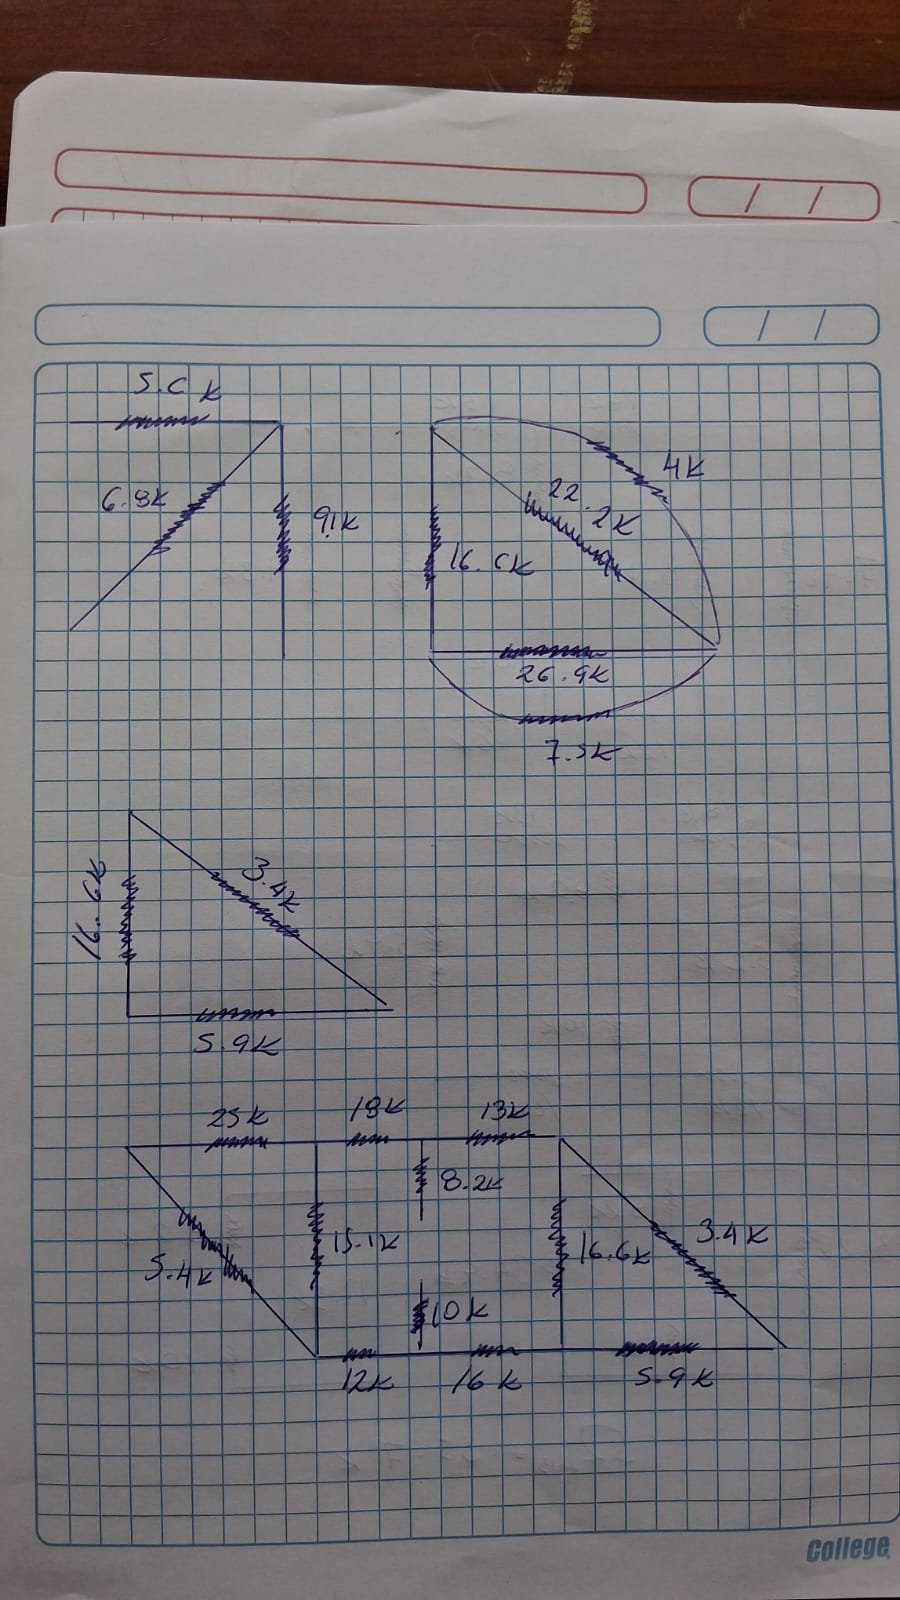 5.6 K
6.8K
9.1K
4K
22.2K
16.6K
26.9K
7.5K
16.6K
3.4K
5.9K
25K
18K
13K
8.2K
15.1K
16.6K
3.4K
5.4K
10K
12K
16K
5.9K
College